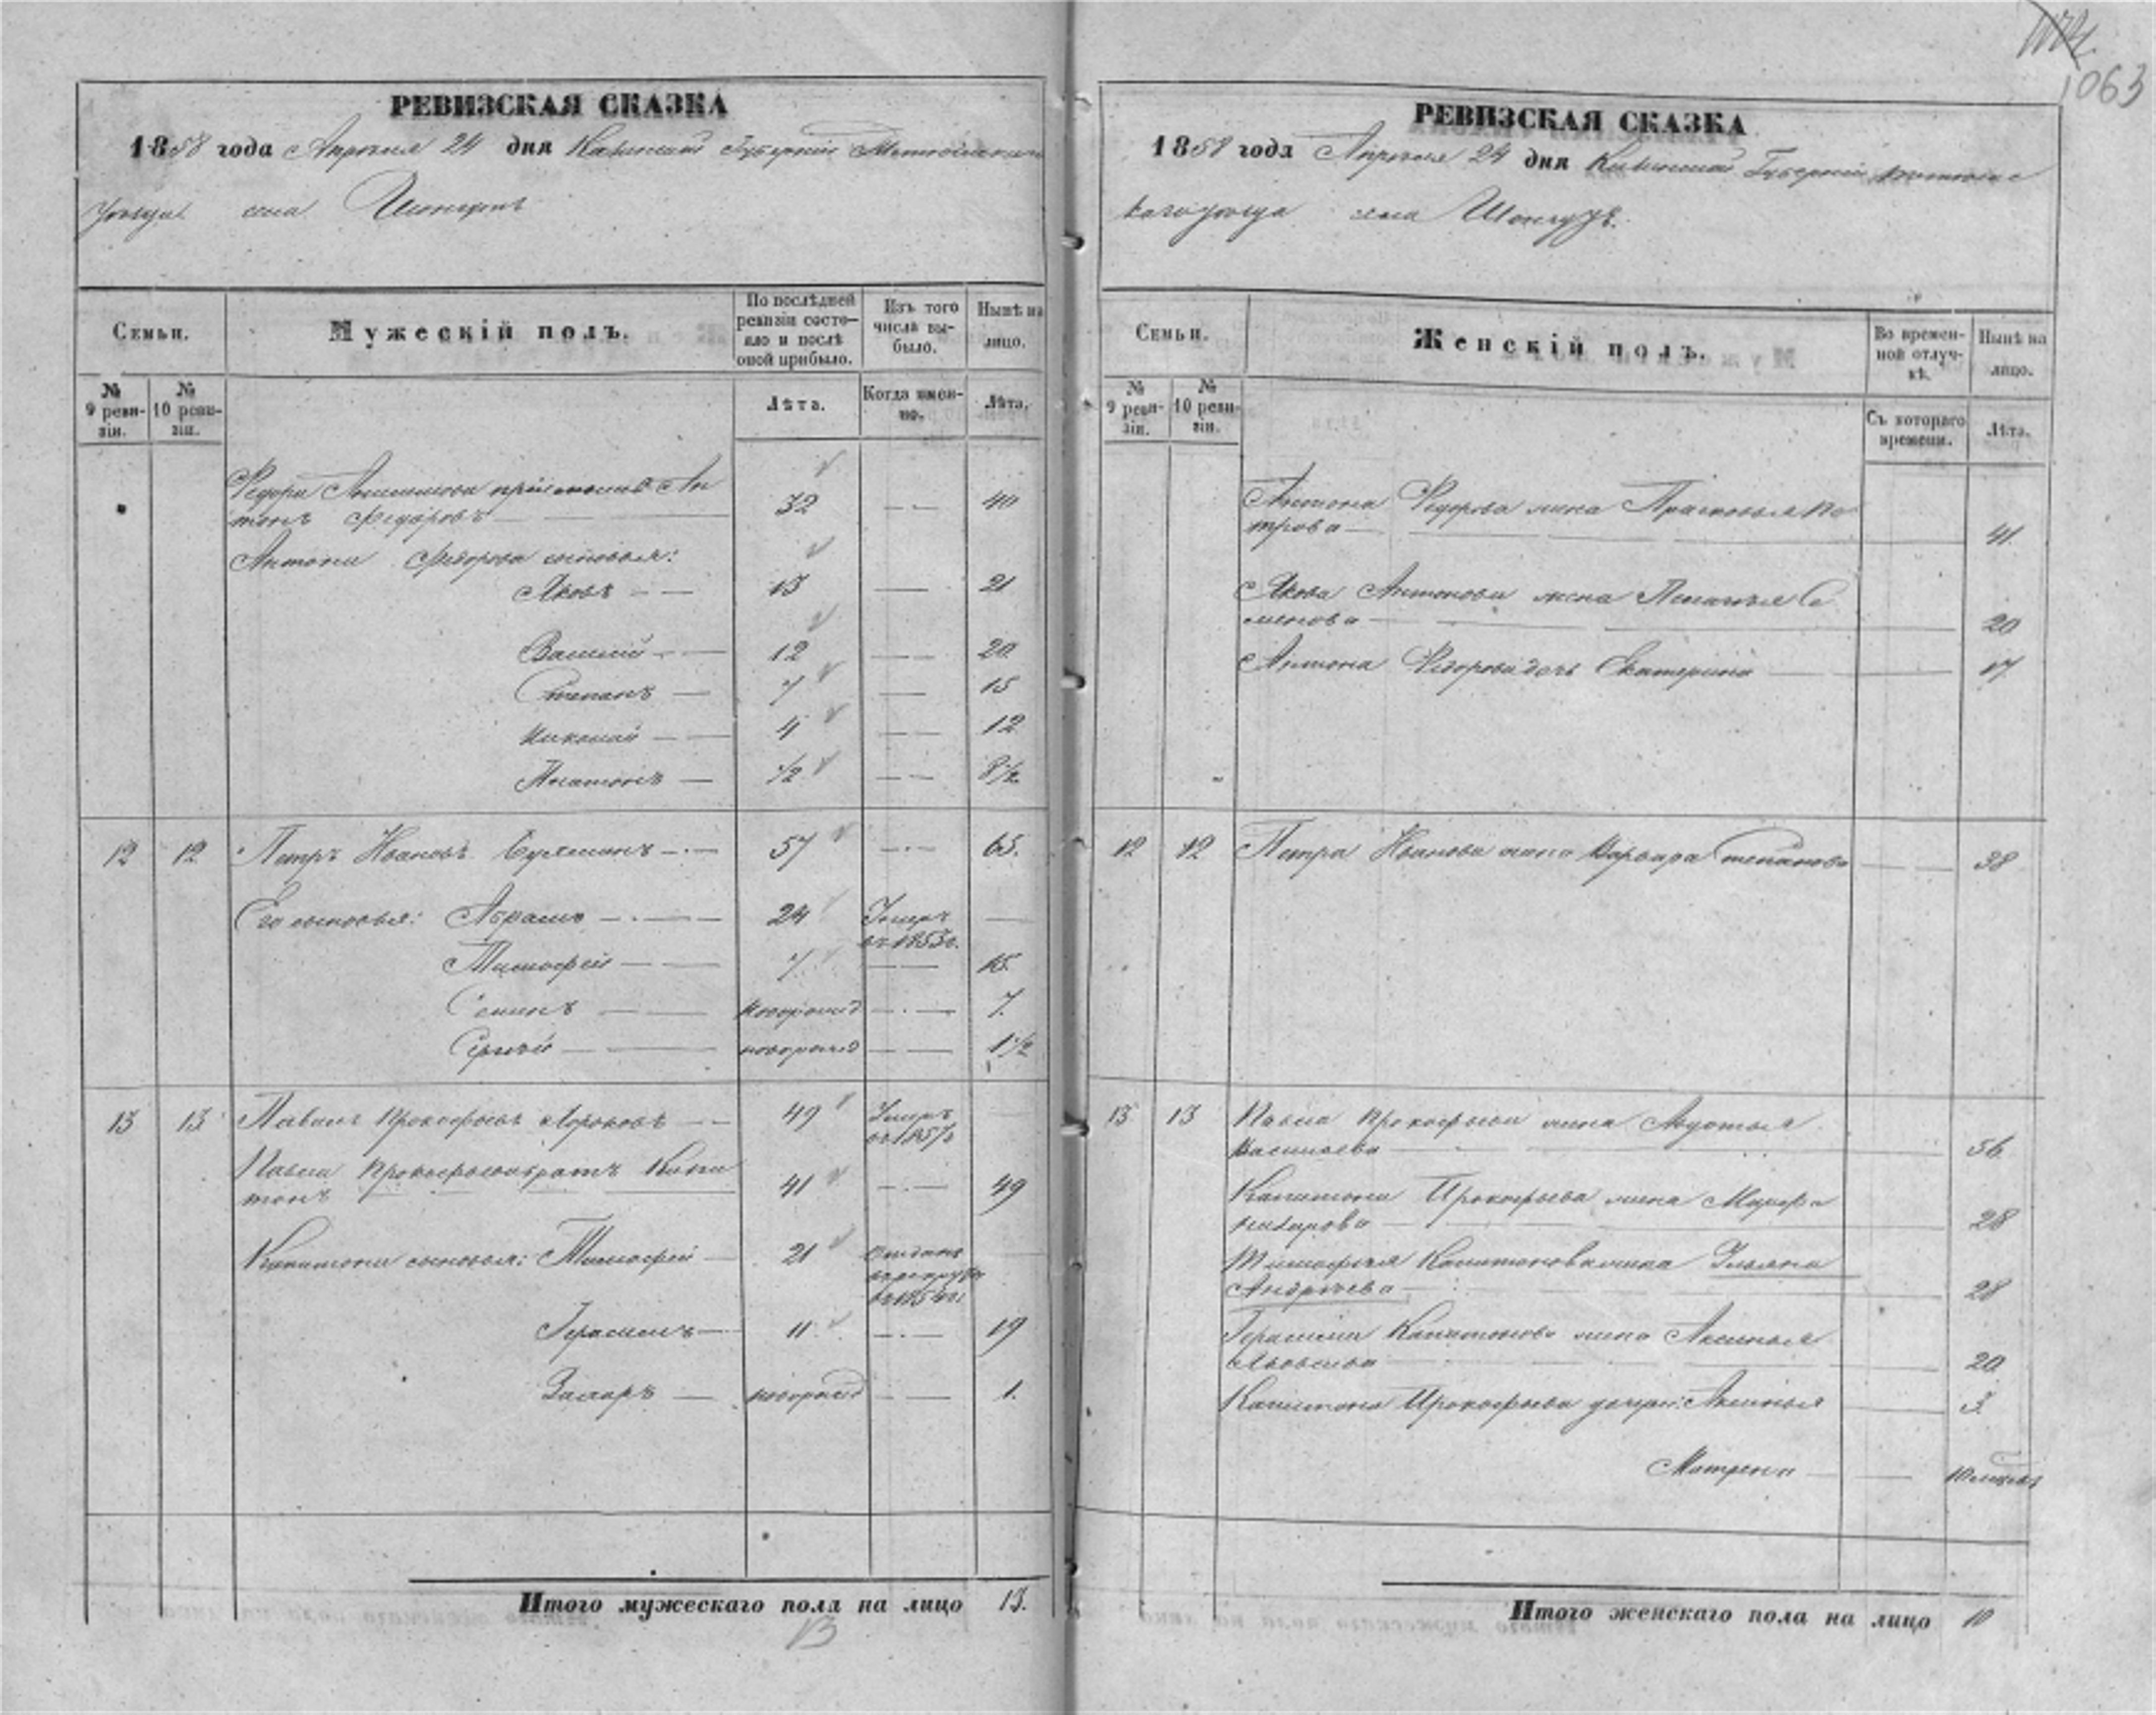 1063
РЕВИЗСКАЯ СКАЗКА
1858 года Апреля 24 дня Казанской Губернии
уезда села
Семьи.
Мужескій полъ.
По послѣдней ревизіи состо-
яло и послѣ
оной прибыло.
Изъ того
числа вы-
было.
Нынѣ на
лицо.
№
9 реви-
зіи.
№
10 реви-
зіи.
Лѣта.
Когда имен-
но.
Лѣта.
Федора приемышъ Ан
тонъ Федоровъ 32 40
Антона Федорова сыновья:
Яковъ 13 21
Василий 12 20
Степанъ 7 15
Николай 4 12
Платонъ 1/2 8 1/2
12 12 Петръ Ивановъ 57 65.
Его сыновья: Абрамъ 24 Умеръ
въ 1853г.
Тимофей 7 15.
Семенъ новорожд 7.
Сергѣй новорожд 1 1/2
13 13 Павелъ Прокофьевъ 49 Умеръ
въ 1857г
Павла Прокофьева братъ Капи
тонъ 41 49
Капитона сыновья: Тимофей 21 Отданъ
въ рекруты
въ 1854г.
Герасимъ 11 19
Захаръ новорожд 1.
Итого мужескаго пола на лицо 13.
13
РЕВИЗСКАЯ СКАЗКА
1858 года Апреля 24 дня Казанской Губернии
уезда села Шонгутъ.
Семьи.
Женскій полъ.
Во времен-
ной отлуч-
кѣ.
Нынѣ на
лицо.
№
9 реви-
зіи.
№
10 реви-
зіи.
Съ котораго
времени.
Лѣта.
Антона Федорова жена Прасковья Пе
трова 41
Якова Антонова жена Пелагѣя Се
менова 20
Антона Федорова дочь Екатерина 17
12 12 Петра Иванова жена Варвара Степанова 38
13 13 Павла Прокофьева жена Авдотья
Васильева 56
Капитона Прокофьева жена Марфа
28
Тимофея Капитонова жена Ульяна
Андреева 28
Герасима Капитонова жена Аксинья
20
Капитона Прокофьева дочери: Аксинья 3.
Матрена 10
Итого женскаго пола на лицо 10